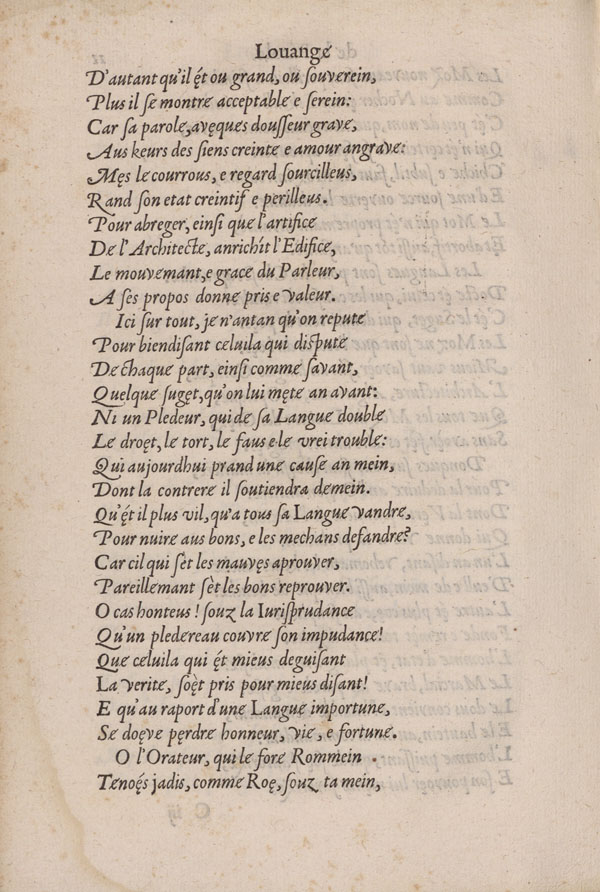 Louange
D'autant qu'il ę́t ou grand, ou souverein,
Plus il se montre acceptable e serein:
Car sa parole, avęques dousseur grave,
Aus keurs des siens creinte e amour angrave:
Męs le courrous, e regard sourcilleus,
Rand son etat creintif e perilleus.
Pour abreger, einsi que l'artifice
De l'Architecte, anrichít l'Edifice,
Le mouvemant, e grace du Parleur,
A sęs propos donne pris e valeur.
Ici sur tout, je n'antan qu'on repute
Pour biendisant celuila qui dispute
De chaque part, einsi comme savant,
Quelque suget, qu'on lui męte an avant:
Ni un Pledeur, qui de sa Langue double
Le droęt, le tort, le faus e le vrei trouble:
Qui aujourdhui prand une cause an mein,
Dont la contrere il soutiendra demein.
Qu'ę́t il plus vil, qu'a tous sa Langue vandre,
Pour nuire aus bons, e les mechans defandre?
Car cil qui sèt les mauvęs aprouver,
Pareillemant sèt les bons reprouver.
O cas honteus! souz la Iurisprudance
Qu'un pledereau couvre son impudance!
Que celuila qui ę́t mieus deguisant
La verite, soęt pris pour mieus disant!
E qu'au raport d'une Langue importune,
Se doęve pęrdre honneur, vie, e fortune.
O l'Orateur, qui le fore Rommein
Tenoęs jadis, comme Roę, souz ta mein,